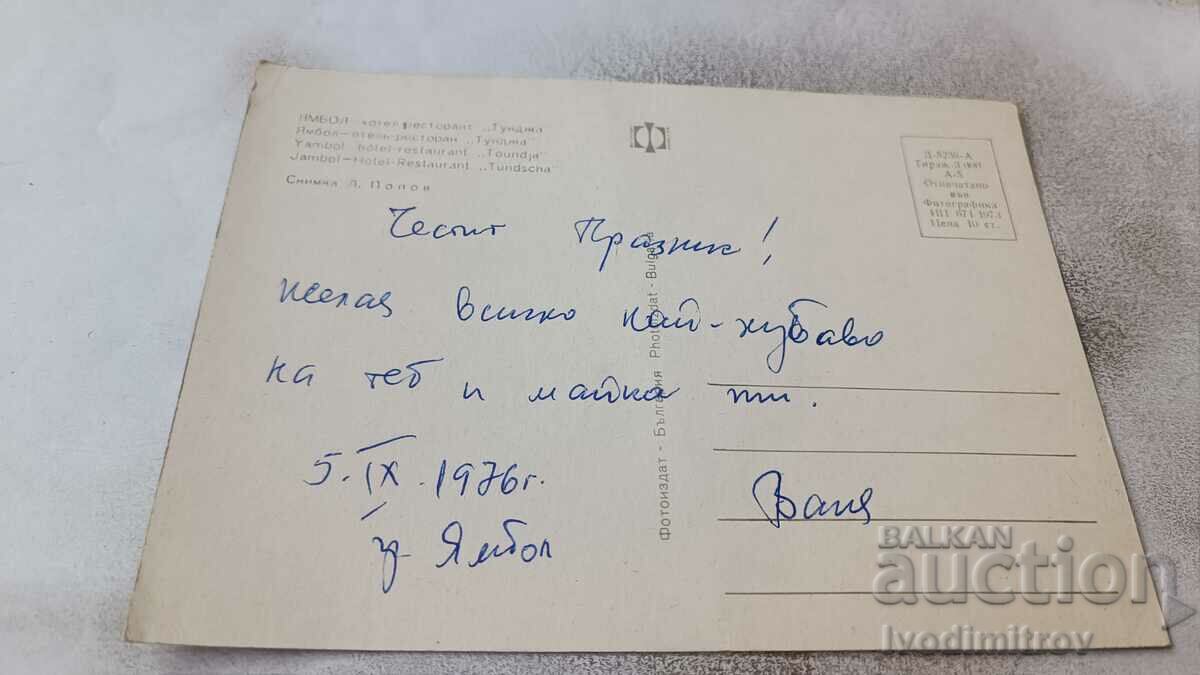 ЯМБОЛ – хотел-ресторант „Тунджа"
Ямбол – отель-ресторан „Тунджа"
Yambol hôtel-restaurant „Toundja"
Jambol – Hotel-Restaurant „Tundscha"
Снимка Л. Попов
Д-8236-А
Тираж
А-5
Отпечатано
във
Фотографика
1973
Цена 10 ст.
Честит Празник!
желая всичко най-хубаво
на теб и майка ти.
5.IX.1976г.
гр. Ямбол
Ваня
Фотоиздат - България Photoizdat - Bulgaria
BALKAN
auction
Ivodimitrov